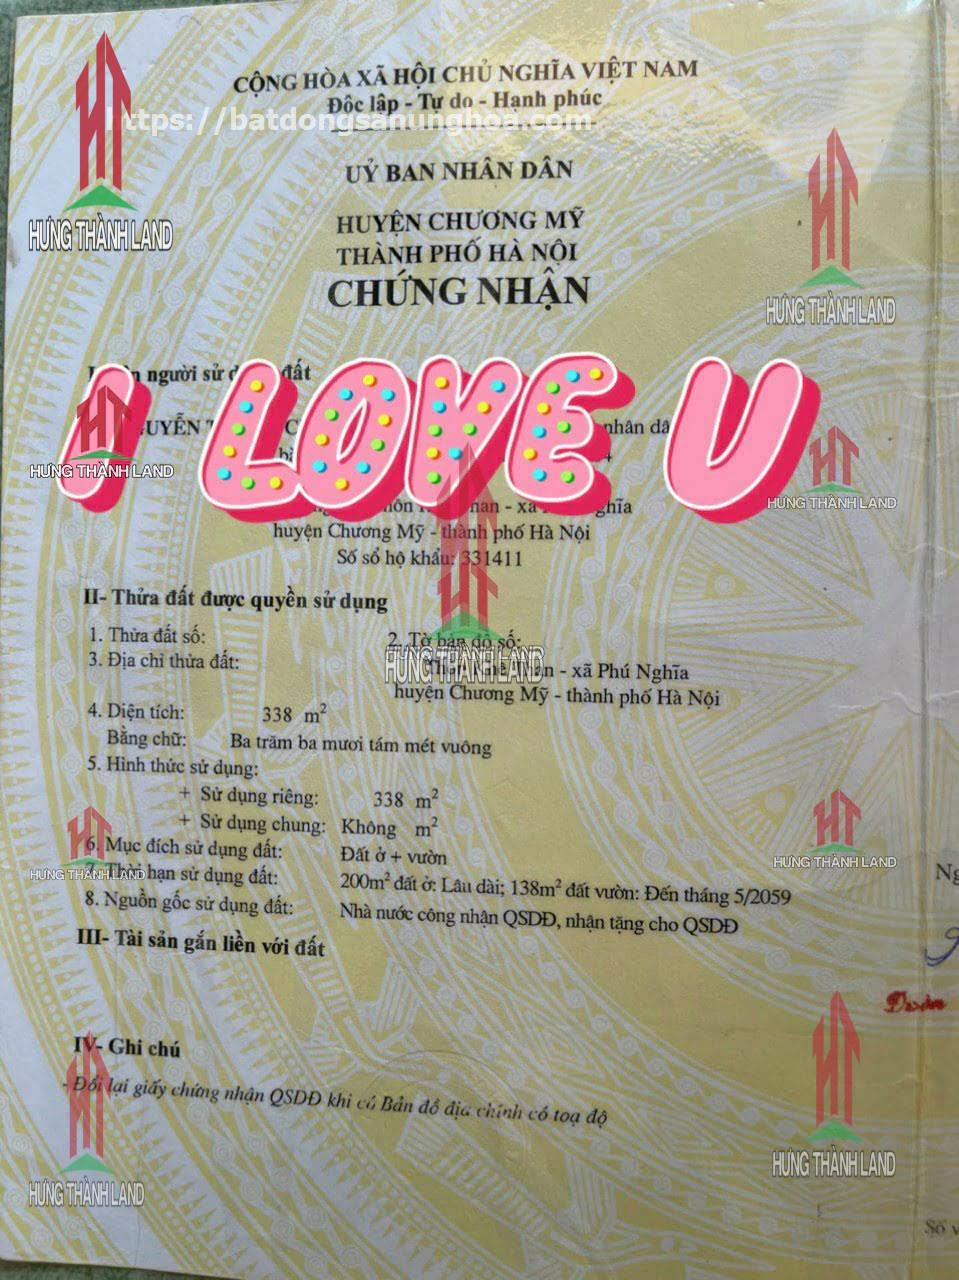 CỘNG HÒA XÃ HỘI CHỦ NGHĨA VIỆT NAM
Độc lập - Tự do - Hạnh phúc
https://batdongsanunghoa.com
UỶ BAN NHÂN DÂN
HUYỆN CHƯƠNG MỸ
THÀNH PHỐ HÀ NỘI
CHỨNG NHẬN
HƯNG THÀNH LAND
HƯNG THÀNH LAND
người sử đất
I LOVE U
nhân
HƯNG THÀNH LAND
HƯNG THÀNH LAND
huyện Chương Mỹ - thành phố Hà Nội
Số sổ hộ khẩu: 331411
II- Thửa đất được quyền sử dụng
1. Thửa đất số: 2. Tờ bản đồ số:
HƯNG THÀNH LAND
3. Địa chỉ thửa đất: - xã Phú Nghĩa
huyện Chương Mỹ - thành phố Hà Nội
4. Diện tích: 338 m²
Bằng chữ: Ba trăm ba mươi tám mét vuông
5. Hình thức sử dụng:
+ Sử dụng riêng: 338 m²
+ Sử dụng chung: Không m²
6. Mục đích sử dụng đất: Đất ở + vườn
HƯNG THÀNH LAND
HƯNG THÀNH LAND
7. Thời hạn sử dụng đất: 200m² đất ở: Lâu dài; 138m² đất vườn: Đến tháng 5/2059
8. Nguồn gốc sử dụng đất: Nhà nước công nhận QSDĐ, nhận tặng cho QSDĐ
III- Tài sản gắn liền với đất
Đoàn
IV- Ghi chú
- Đổi lại giấy chứng nhận QSDĐ khi có Bản đồ địa chính có toạ độ
HƯNG THÀNH LAND
HƯNG THÀNH LAND
Số